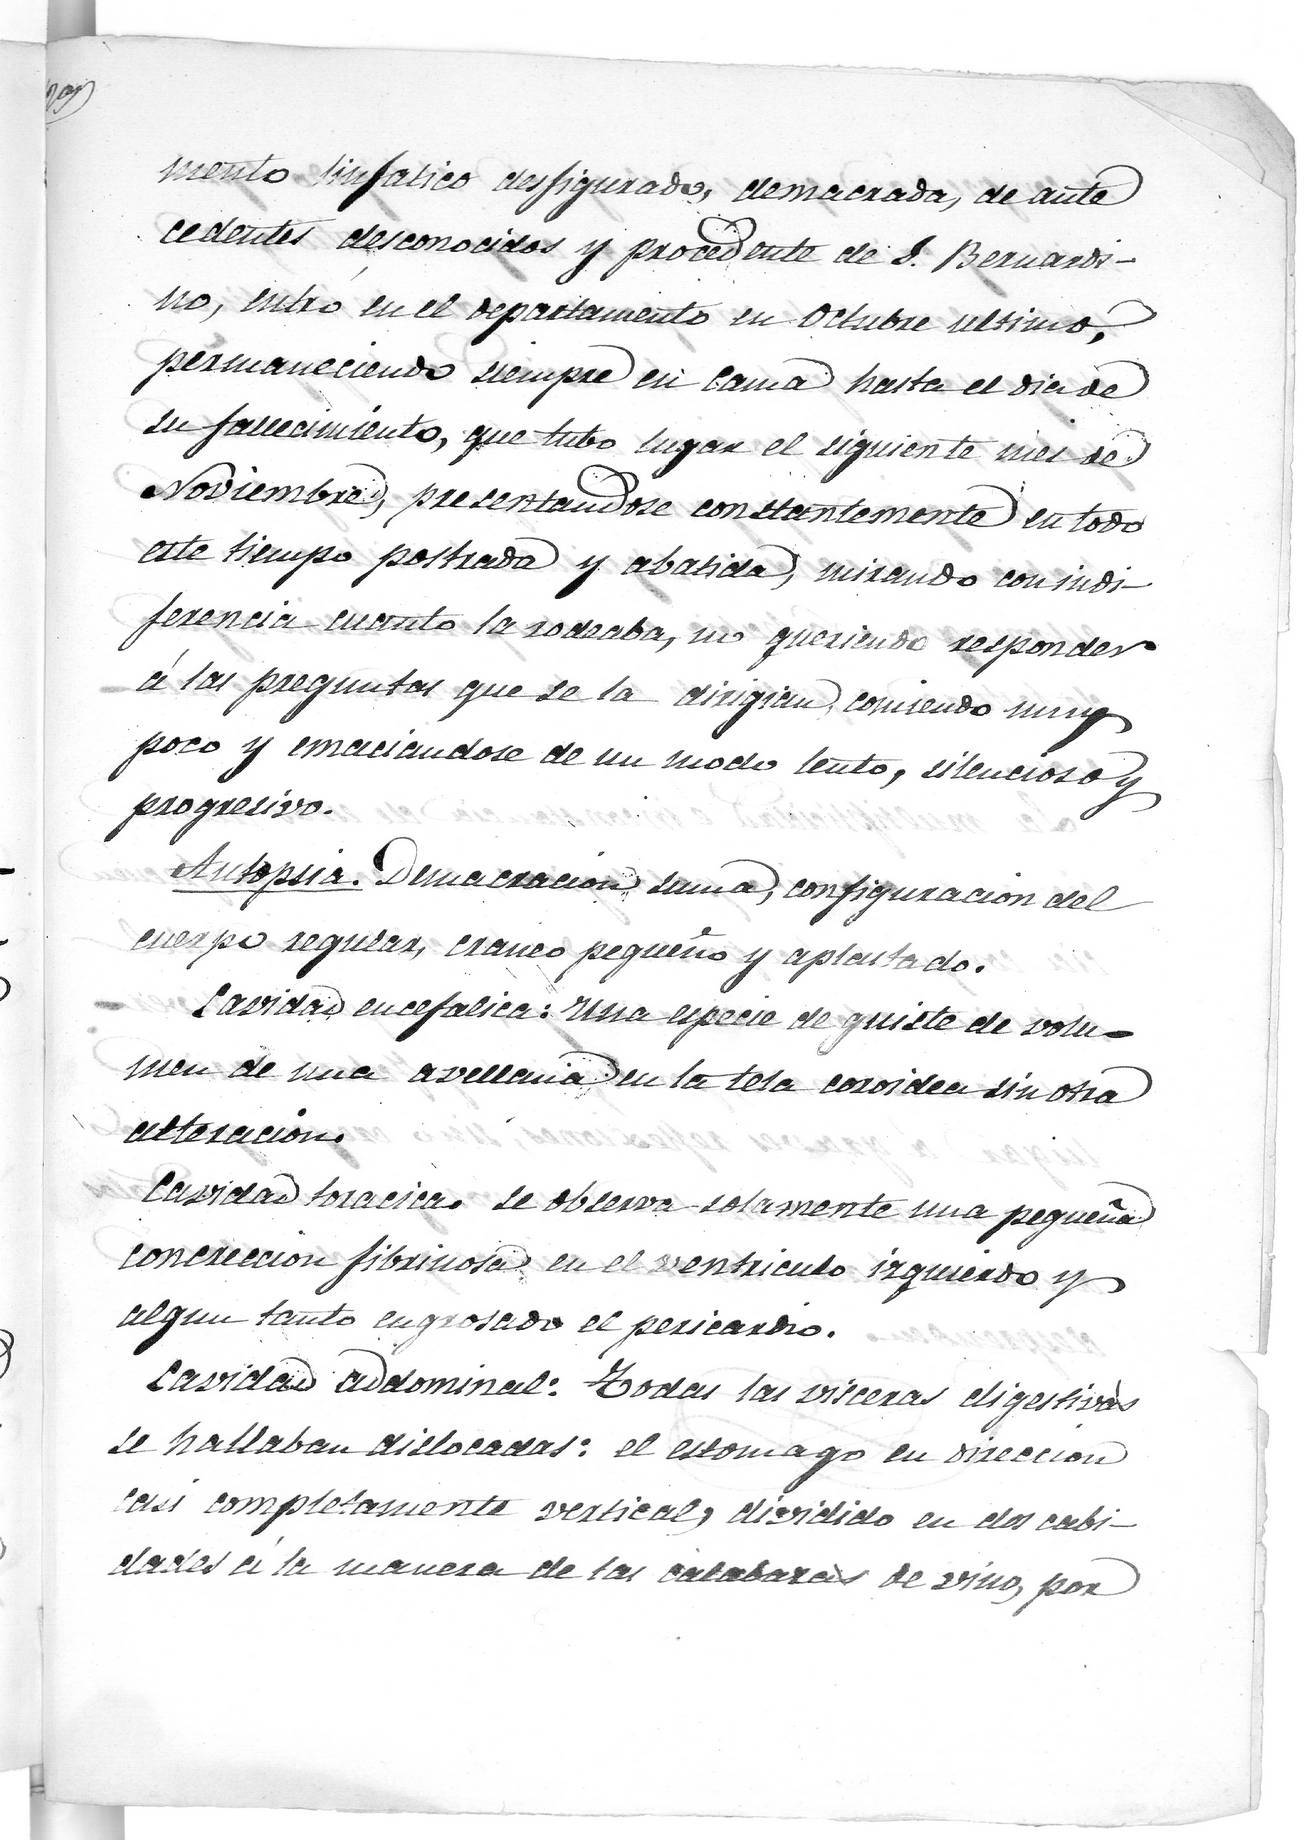 mento linfatico desfigurado, demacrada, de ante
cedentes desconocidos y procedente de S. Bernardi-
no, entró en el departamento en Octubre ultimo,
permaneciendo siempre en cama hasta el dia de
su fallecimiento, que tubo lugar el siguiente mes de
Noviembre, presentandose constantemente en todo
este tiempo postrada y abatida, mirando con indi-
ferencia cuanto la rodeaba, no queriendo responder
á las preguntas que se la dirigian, comiendo muy
poco y emaciandose de un modo lento, silencioso y
progresivo.
Autopsia. Demacracion suma, configuracion del
cuerpo regular, craneo pequeño y aplastado.
Cavidad encefalica: Una especie de quiste de volu-
men de una avellana en la tela coroidea sin otra
alteracion.
Cavidad toracica. Se observa solamente una pequeña
concreccion fibrinosa en el ventriculo izquierdo y
algun tanto engrosado el pericardio.
Cavidad abdominal: Todas las visceras digestivas
se hallaban dislocadas: el estomago en direccion
casi completamente vertical, dividido en dos cabi-
dades á la manera de las calabazas de vino, por